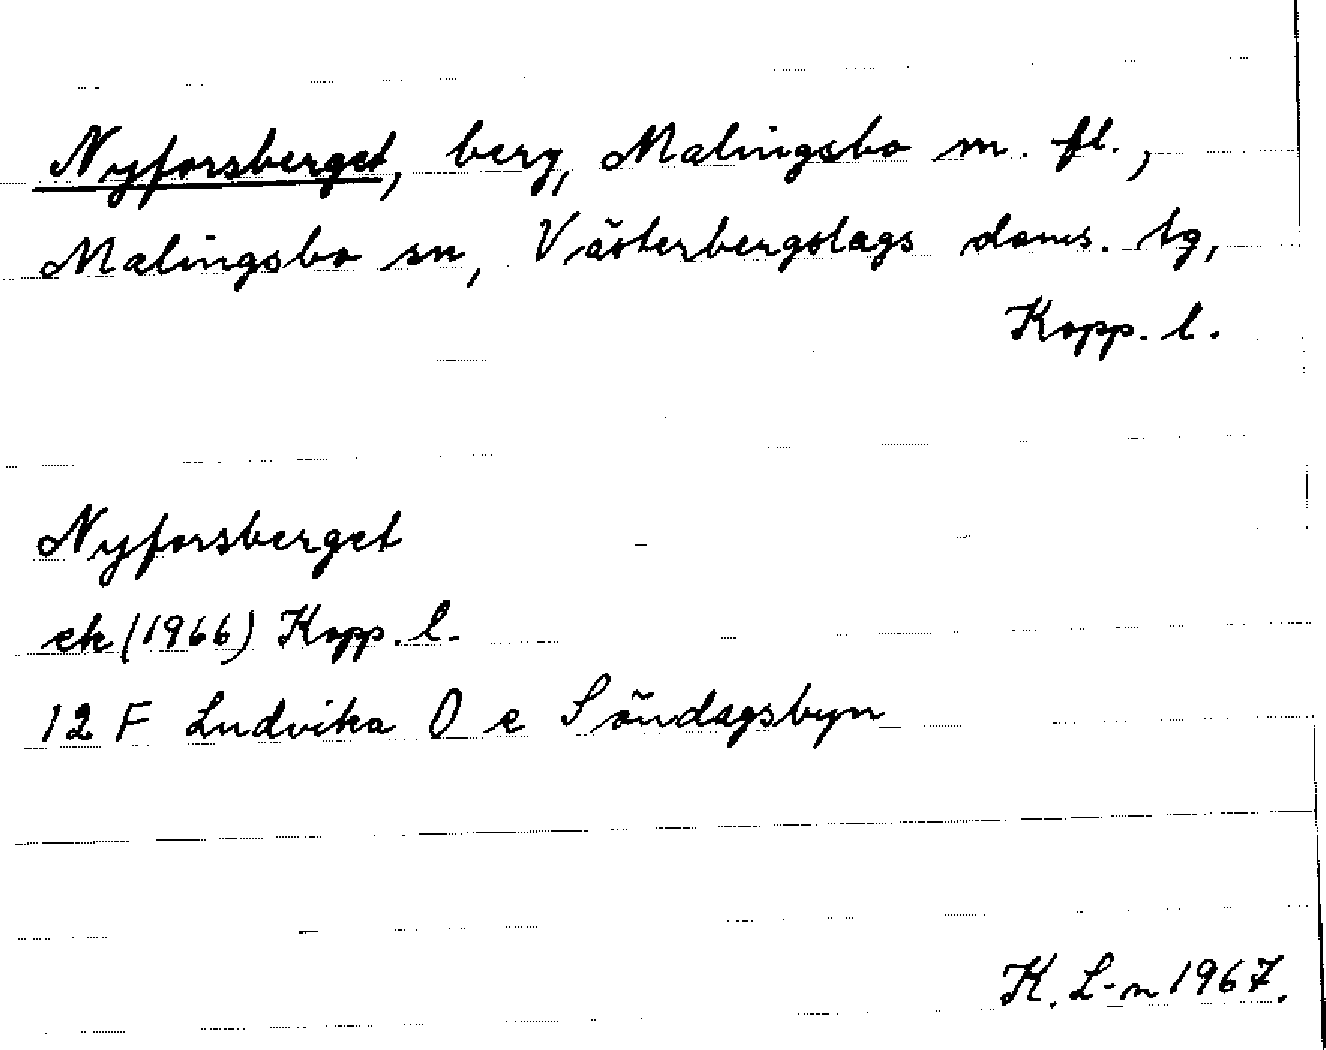 Nyforsberget, berg, Malingsbo m. fl.,
Malingsbo sn, Västerbergslags doms. tg,
Kopp. l.
Nyforsberget
ek (1966) Kopp. l.
12 F Ludvika O e Söndagsbyn
K. L-n 1967.